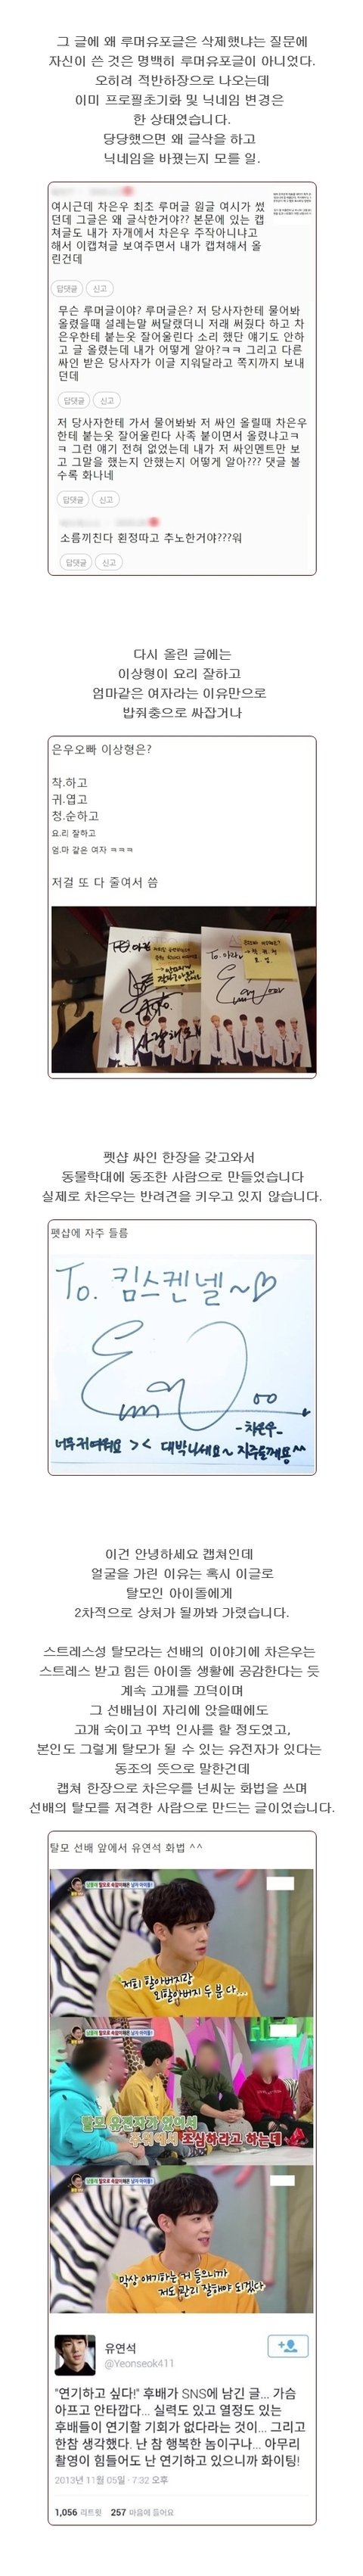 그 글에 왜 루머유포글은 삭제했냐는 질문에
자신이 쓴 것은 명백히 루머유포글이 아니었다.
오히려 적반하장으로 나오는데
이미 프로필초기화 및 닉네임 변경은
한 상태였습니다.
당당했으면 왜 글삭을 하고
닉네임을 바꿨는지 모를 일.
여시근데 차은우 최초 루머글 원글 여시가 썼
던데 그글은 왜 글삭한거야?? 본문에 있는 캡
쳐글도 내가 자개에서 차은우 주작아니냐고
해서 이캡쳐글 보여주면서 내가 캡쳐해서 올
린건데
답댓글 신고
무슨 루머글이야? 루머글은? 저 당사자한테 물어봐
올렸을때 설레는말 써달했더니 저래 써줬다 하고 차
은우한테 붙는옷 잘어울린다 소리 했단 얘기도 안하
고 글 올렸는데 내가 어떻게 알아?ㅋㅋ 그리고 다른
싸인 받은 당사자가 이글 지워달라고 쪽지까지 보내
던데
답댓글 신고
저 당사자한테 가서 물어봐봐 저 싸인 올릴때 차은우
한테 붙는옷 잘어울린다 사족 붙이면서 올렸냐고ㅋ
ㅋ 그런 얘기 전혀 없었는데 내가 저 싸인멘트만 보
고 그말을 했는지 안했는지 어떻게 알아??? 댓글 볼
수록 화나네
답댓글 신고
소름끼친다 횐정따고 추노한거야???워
답댓글 신고
다시 올린 글에는
이상형이 요리 잘하고
엄마같은 여자라는 이유만으로
밥줘충으로 싸잡거나
은우오빠 이상형은?
착.하고
귀.엽고
청.순하고
요.리 잘하고
엄.마 같은 여자 ㅋㅋㅋ
저걸 또 다 줄여서 씀
To. 아라
사랑해요
펫샵 싸인 한장을 갖고와서
동물학대에 동조한 사람으로 만들었습니다
실제로 차은우는 반려견을 키우고 있지 않습니다.
펫샵에 자주 들름
To. 킴스켄넬~♡
-차은우-
너무귀여워요 >< 대박나세요~ 자주올께용^^
이건 안녕하세요 캡쳐인데
얼굴을 가린 이유는 혹시 이글로
탈모인 아이돌에게
2차적으로 상처가 될까봐 가렸습니다.
스트레스성 탈모라는 선배의 이야기에 차은우는
스트레스 받고 힘든 아이돌 생활에 공감한다는 듯
계속 고개를 끄덕이며
그 선배님이 자리에 앉을때에도
고개 숙이고 꾸벅 인사를 할 정도였고,
본인도 그렇게 탈모가 될 수 있는 유전자가 있다는
동조의 뜻으로 말한건데
캡쳐 한장으로 차은우를 넌씨눈 화법을 쓰며
선배의 탈모를 저격한 사람으로 만드는 글이었습니다.
탈모 선배 앞에서 유연석 화법 ^^
저희 할아버지랑
외할아버지 두 분 다...
탈모 유전자가 있어서
주위에서 조심하라고 하는데
막상 얘기하는 거 들으니까
저도 관리 잘해야 되겠다
유연석
@Yeonseok411
"연기하고 싶다!" 후배가 SNS에 남긴 글... 가슴
아프고 안타깝다... 실력도 있고 열정도 있는
후배들이 연기할 기회가 없다라는 것이... 그리고
한참 생각했다. 난 참 행복한 놈이구나... 아무리
촬영이 힘들어도 난 연기하고 있으니까 화이팅!
2013년 11월 05일 · 7:32 오후
1,056 리트윗 257 마음에 들어요